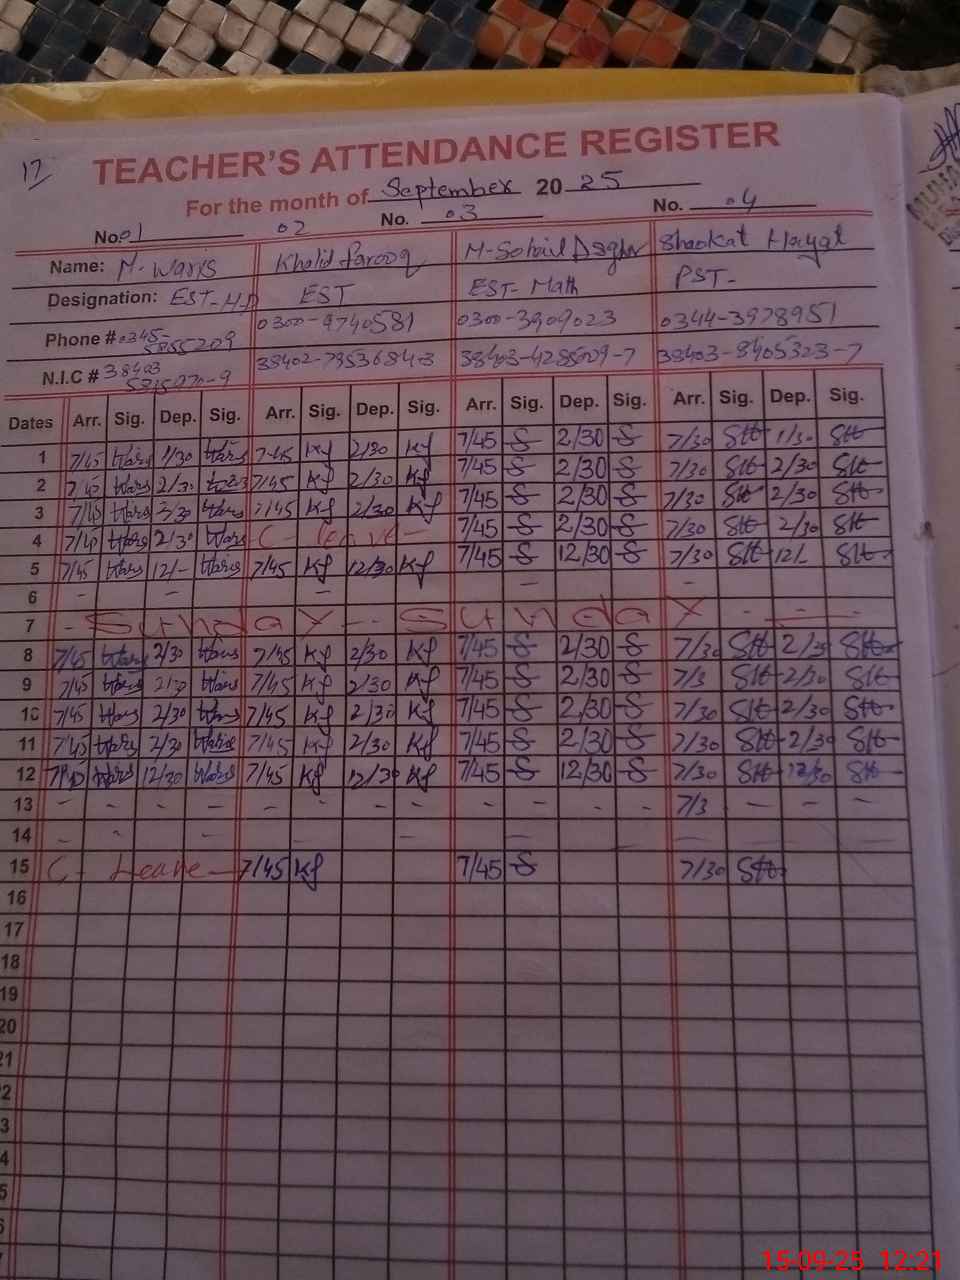 17
TEACHER'S ATTENDANCE REGISTER
For the month of September 20 25
No. 01 02 No. 03 No. 04
Name: M. Waris Khalid Farooq M-Sohail Asghar Shaokat Hayat
Designation: EST-H-P EST EST-Math PST-
Phone # 0345- 5855209 0300-9740581 0300-3909023 0344-3978951
N.I.C # 38403 38403-4285009-7 38403-8405323-7
Dates Arr. Sig. Dep. Sig. Arr. Sig. Dep. Sig. Arr. Sig. Dep. Sig. Arr. Sig. Dep. Sig.
1 7/45 Waris 1/30 Waris 7-45 Kf 2/30 Kf 7/45 S 2/30 S 7/30 SH 1/30 SH
2 7/45 Waris 2/30 7/45 Kf 2/30 Kf 7/45 S 2/30 S 7/30 SH 2/30 SH
3 7/45 Waris 2/30 Waris 7/45 Kf 2/30 Kf 7/45 S 2/30 S 7/30 SH 2/30 SH
4 7/45 Waris 2/30 Waris C- leave- 7/45 S 2/30 S 7/30 SH 2/30 SH
5 7/45 Waris 12/- Waris 7/45 Kf 12/30 Kf 7/45 S 12/30 S 7/30 SH 12/- SH
6 - - - -
7 - Sunday -- Sunday - - -
8 7/45 Waris 2/30 Waris 7/45 Kf 2/30 Kf 7/45 S 2/30 S 7/30 SH 2/30 SH
9 7/45 Waris 2/30 Waris 7/45 Kf 2/30 Kf 7/45 S 2/30 S 7/3 SH 2/30 SH
10 7/45 Waris 2/30 Waris 7/45 Kf 2/30 Kf 7/45 S 2/30 S 7/30 SH 2/30 SH
11 7/45 Waris 2/30 Waris 7/45 Kf 2/30 Kf 7/45 S 2/30 S 7/30 SH 2/30 SH
12 7/45 Waris 12/30 Waris 7/45 Kf 12/30 Kf 7/45 S 12/30 S 7/30 SH 12/30 SH
13 - - - - - - - - - - - - 7/3 - - -
14 - - - - - - - - -
15 C- Leave- 7/45 Kf 7/45 S 7/30 SH
16
17
18
19
20
21
2
3
4
5
6
15-09-25 12:21